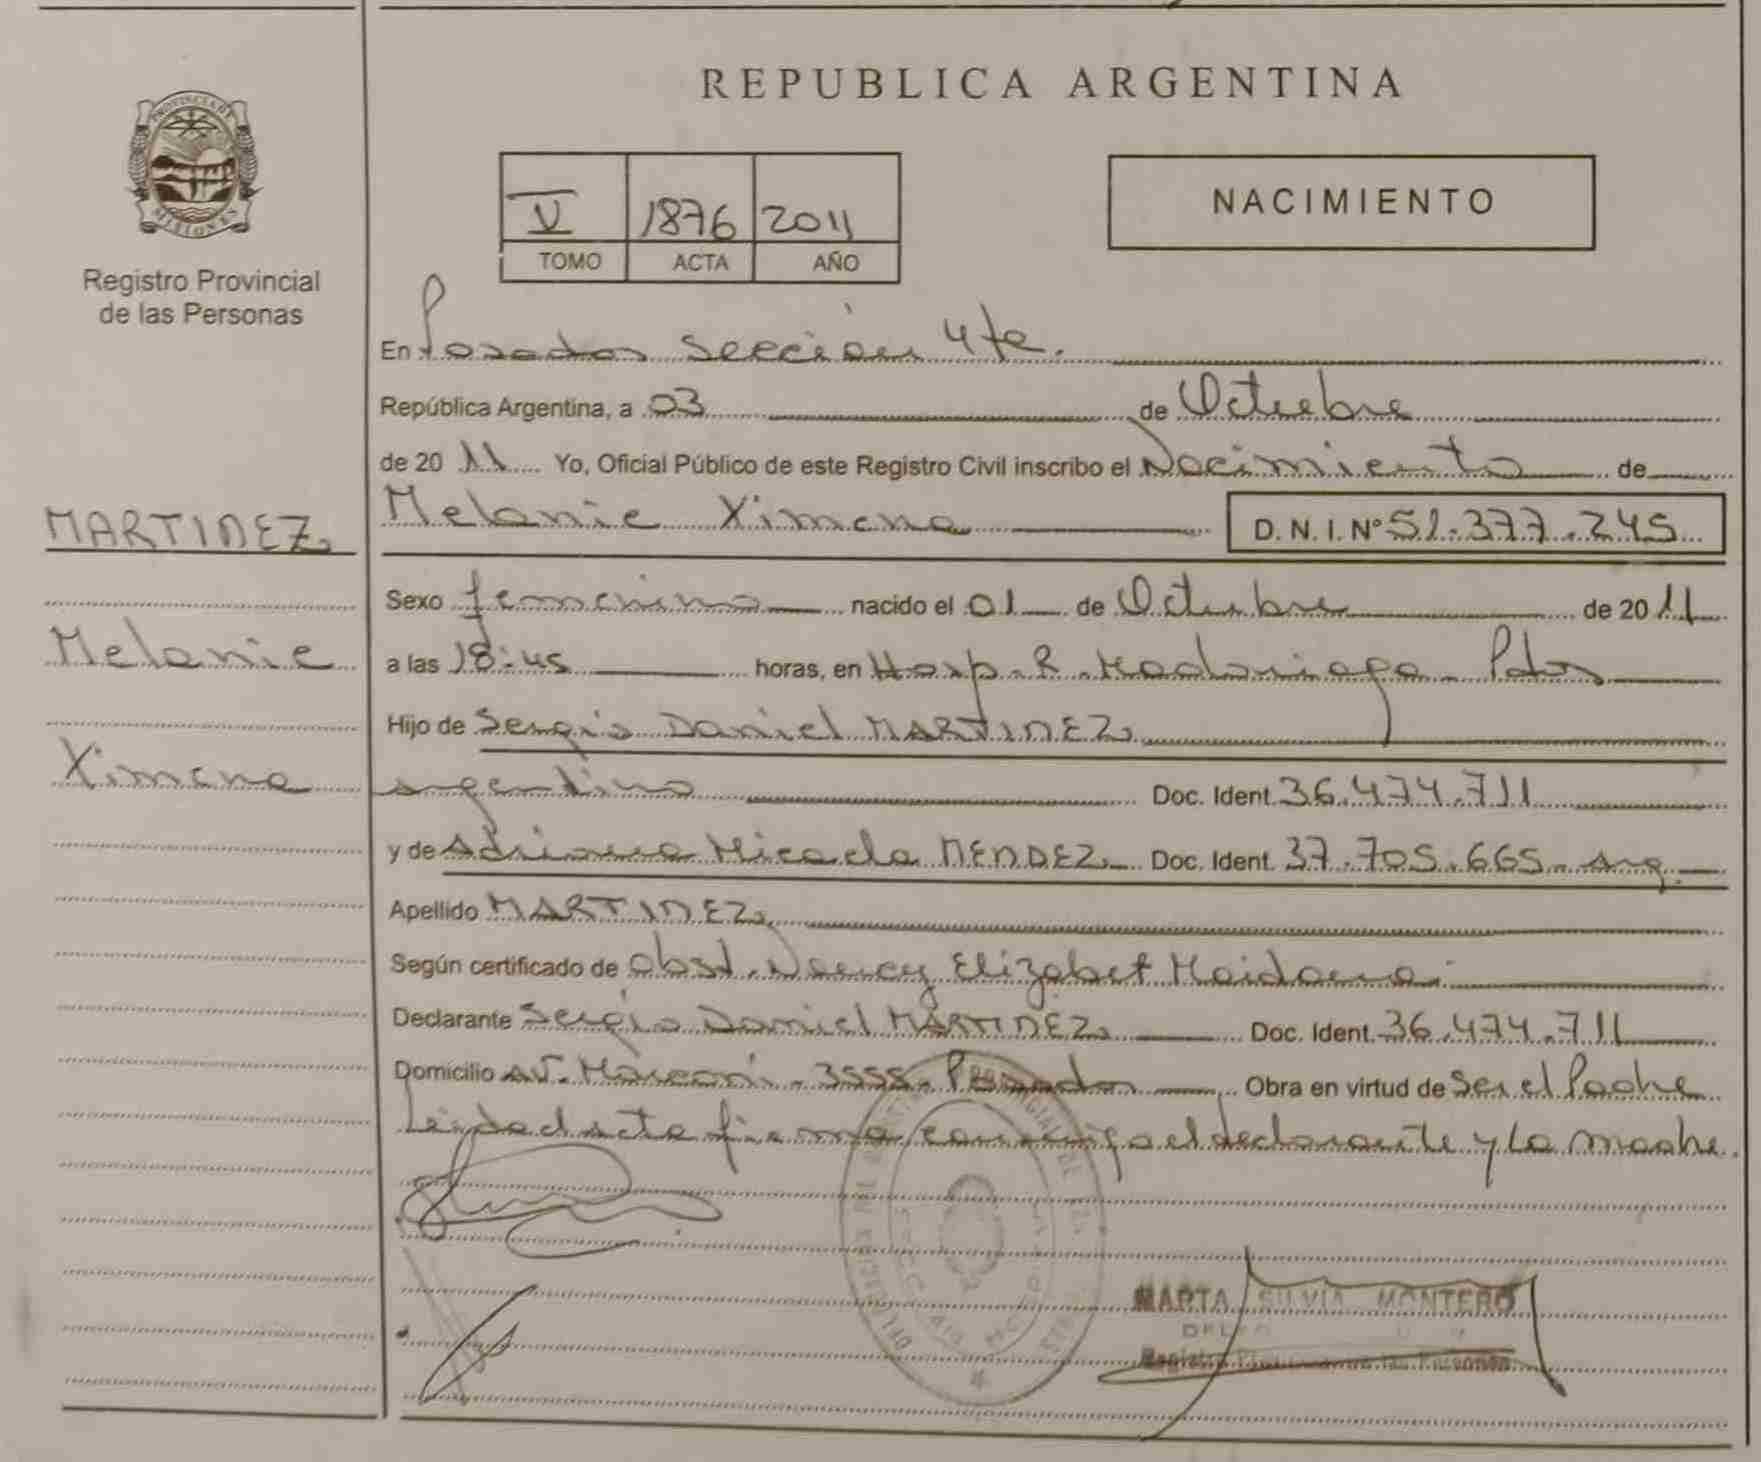 PROVINCIA DE
MISIONES
Registro Provincial
de las Personas
MARTINEZ
Melanie
Ximena
REPUBLICA ARGENTINA
V 1876 2011
TOMO ACTA AÑO
NACIMIENTO
En Posadas sección 4ta.
República Argentina, a 03 de Octubre
de 20 11 Yo, Oficial Público de este Registro Civil inscribo el Nacimiento de
Melanie Ximena D. N. I. Nº 51.377.245
Sexo femenino nacido el 01 de Octubre de 20 11
a las 18:45 horas, en Hosp. R. Madariaga Pdas
Hijo de Sergio Daniel MARTINEZ
argentino Doc. Ident. 36.474.711
y de Adriana Micaela MENDEZ Doc. Ident. 37.705.665 - Arg.
Apellido MARTINEZ
Según certificado de Obst. Nancy Elizabet Maidana
Declarante Sergio Daniel MARTINEZ Doc. Ident. 36.474.711
Domicilio Av. Marconi - 3555 - Posadas Obra en virtud de Ser el Padre
Leida el acta firma conmigo el declarante y la madre.
MARTA SILVIA MONTERO
Registro de las Personas